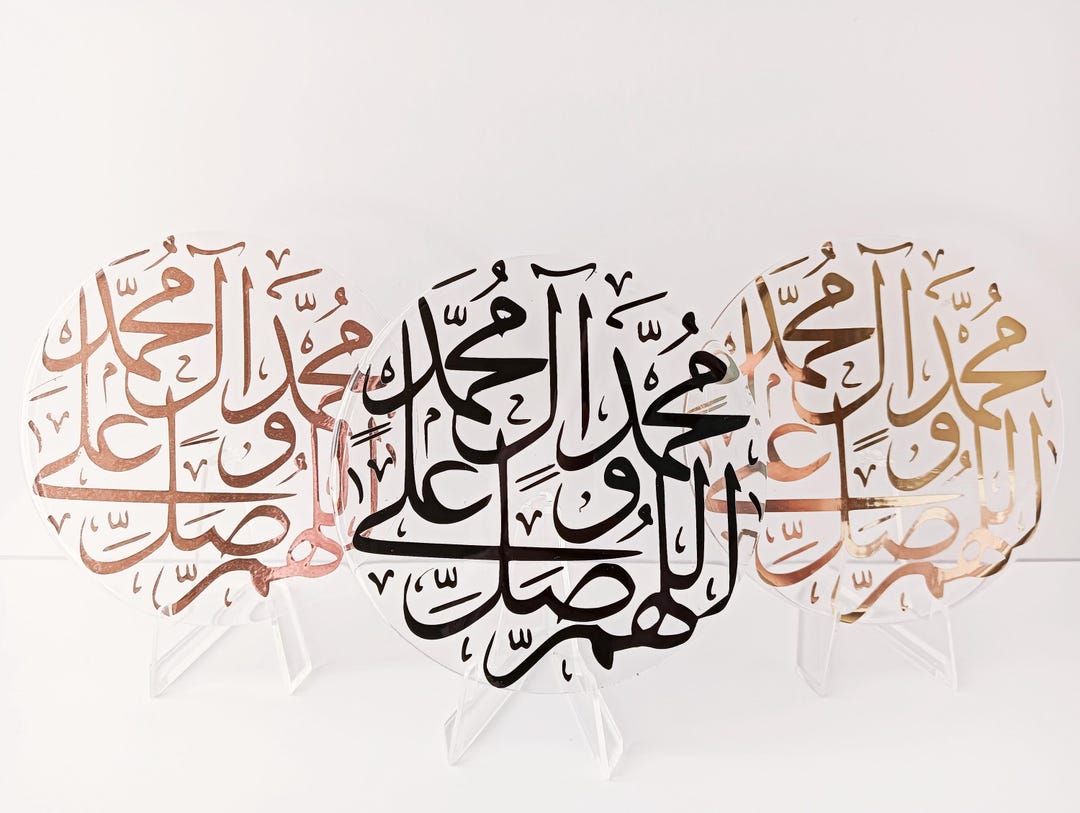 اللهم صل على محمد وآل محمد
اللهم صل على محمد وآل محمد
اللهم صل على محمد وآل محمد